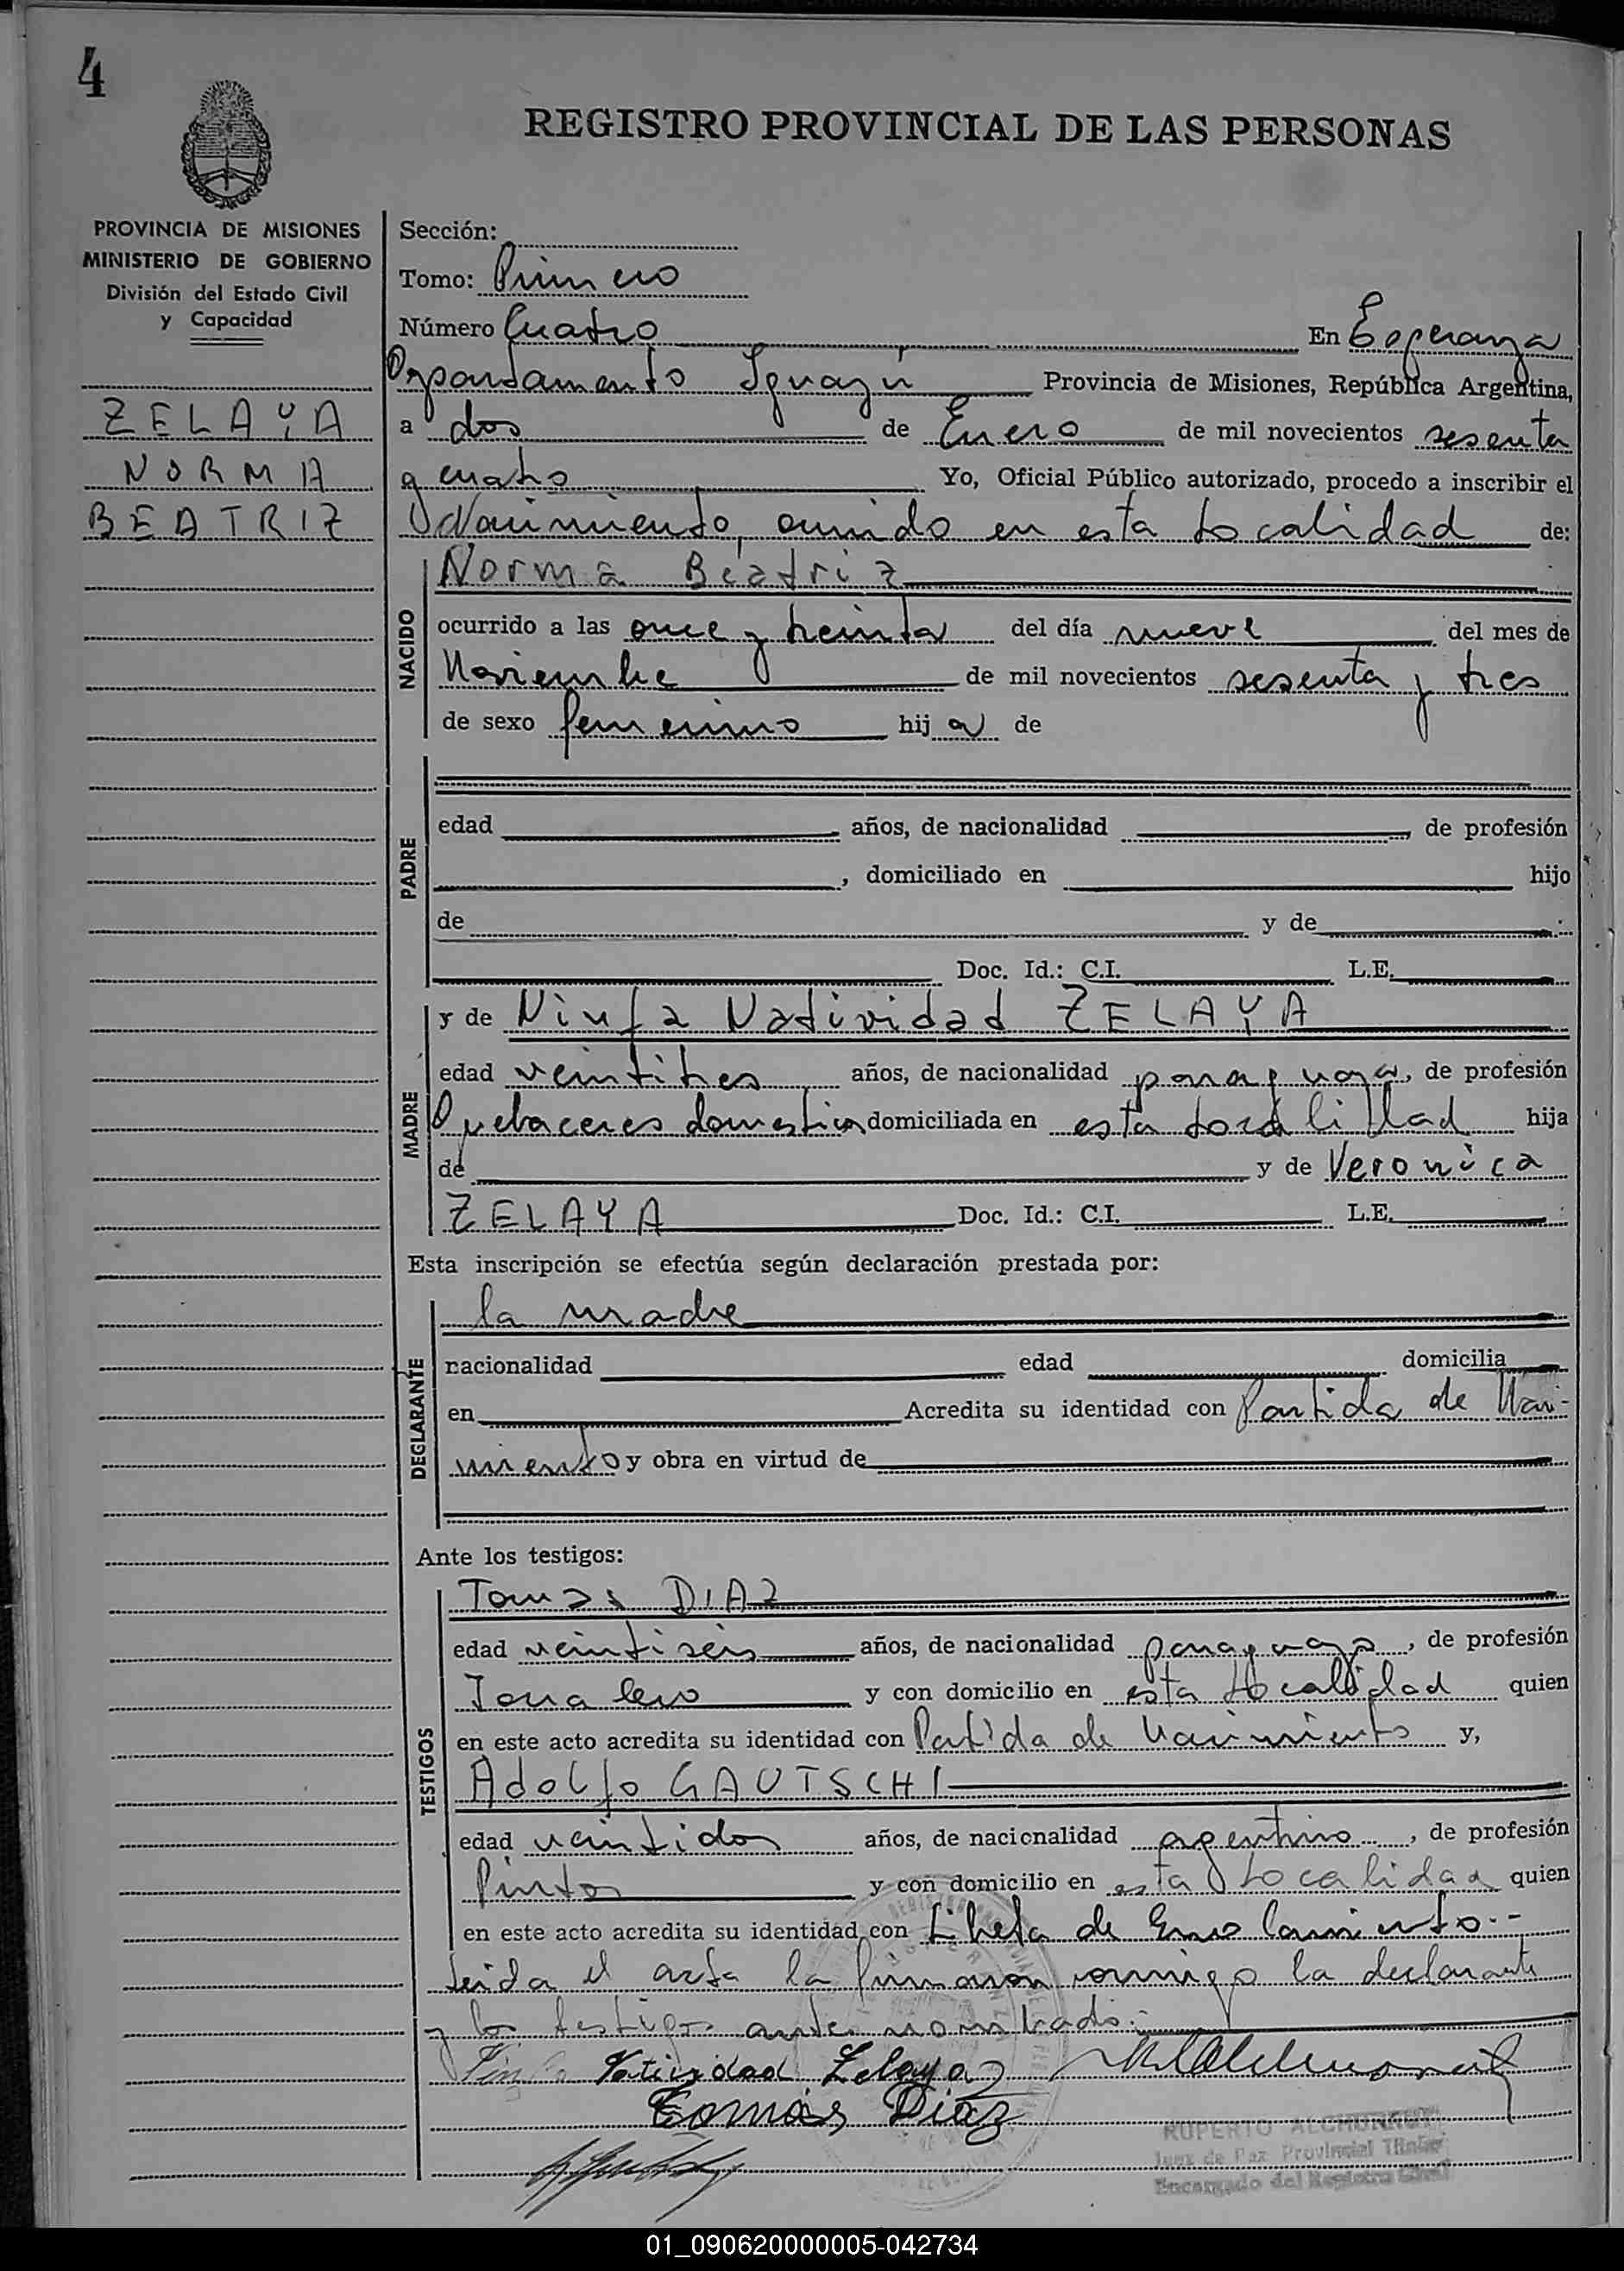 4
REGISTRO PROVINCIAL DE LAS PERSONAS
PROVINCIA DE MISIONES
MINISTERIO DE GOBIERNO
División del Estado Civil
y Capacidad
ZELAYA
NORMA
BEATRIZ
Sección:
Tomo: Primero
Número Cuatro En Esperanza
Departamento Iguazú Provincia de Misiones, República Argentina,
a dos de Enero de mil novecientos sesenta
y cuatro Yo, Oficial Público autorizado, procedo a inscribir el
Nacimiento, ocurrido en esta Localidad de:
NACIDO
Norma Beatriz
ocurrido a las once y treinta del día nueve del mes de
Noviembre de mil novecientos sesenta y tres
de sexo femenino hija de
PADRE
edad años, de nacionalidad , de profesión
, domiciliado en hijo
de y de
Doc. Id.: C.I. L.E.
MADRE
y de Ninfa Natividad ZELAYA
edad veintitres años, de nacionalidad paraguaya, de profesión
Quehaceres domesticos domiciliada en esta Localidad hija
de y de Veronica
ZELAYA Doc. Id.: C.I. L.E.
Esta inscripción se efectúa según declaración prestada por:
DECLARANTE
la madre
nacionalidad edad domicilia
en Acredita su identidad con Partida de Naci-
miento y obra en virtud de
Ante los testigos:
TESTIGOS
Tomas DIAZ
edad veintiseis años, de nacionalidad paraguayo, de profesión
Jornalero y con domicilio en esta Localidad quien
en este acto acredita su identidad con Partida de Nacimiento y,
Adolfo GAUTSCHI
edad veintidos años, de nacionalidad argentino, de profesión
Pintor y con domicilio en esta Localidad quien
en este acto acredita su identidad con Libreta de Enrolamiento.-
Leida el acta la firmaron conmigo la declarante
y los testigos antes nombrados.
Natividad Zelaya
Tomás Diaz
RUPERTO
Juez de Paz Provincial Titular
Encargado del Registro Civil
01_090620000005-042734